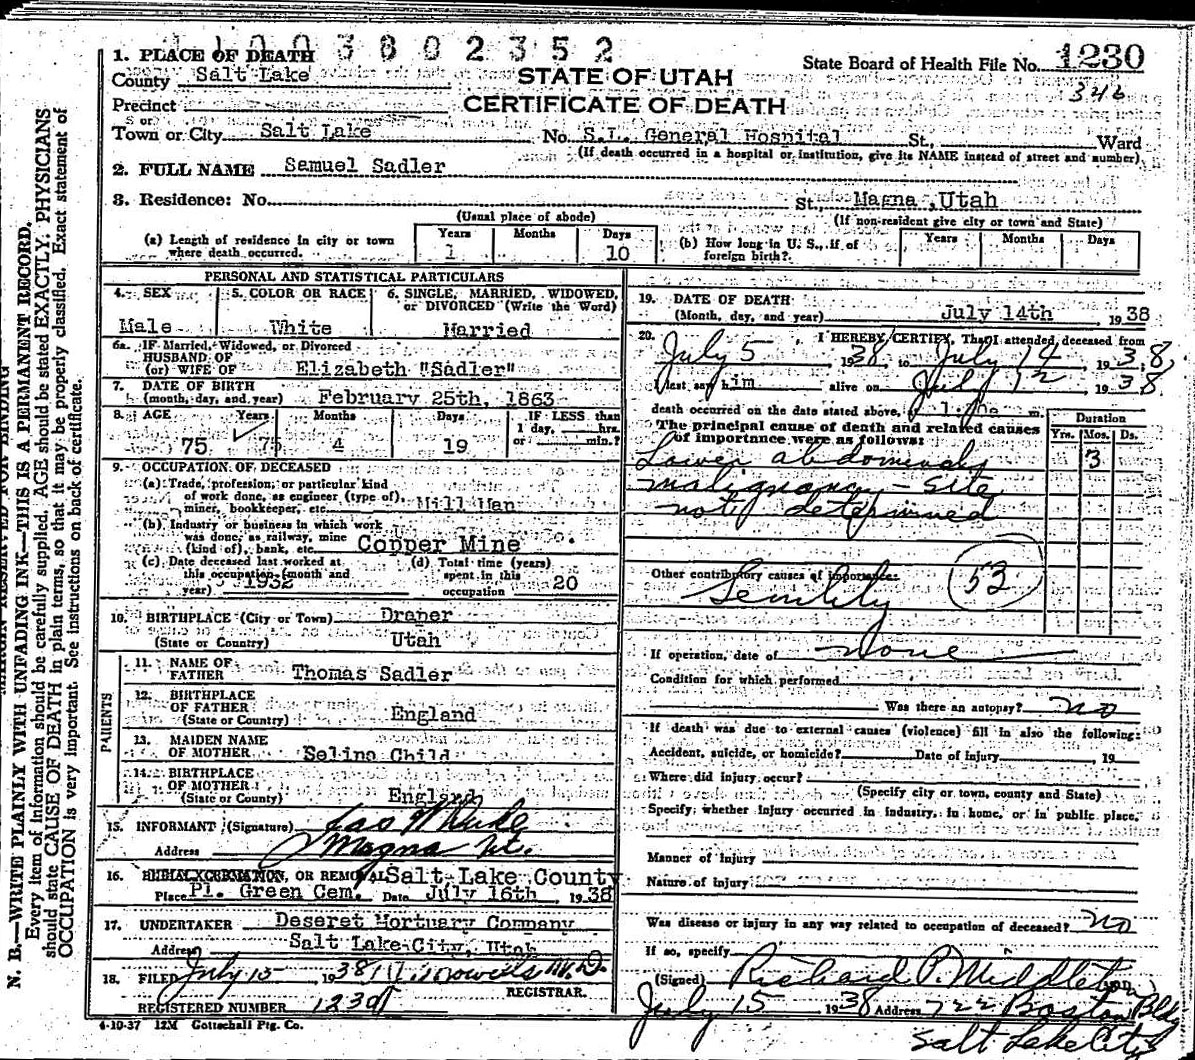 1. PLACE OF DEATH
1 1 0 0 3 8 0 2 3 5 2
County Salt Lake
STATE OF UTAH
State Board of Health File No. 1230
CERTIFICATE OF DEATH
346
Precinct
s or
Town or City Salt Lake No. S.L. General Hospital St., Ward
(If death occurred in a hospital or institution, give its NAME instead of street and number)
2. FULL NAME Samuel Sadler
3. Residence: No. St., Magna, Utah
(Usual place of abode) (If non-resident give city or town and State)
(a) Length of residence in city or town where death occurred. Years 1 Months Days 10
(b) How long in U. S., if of foreign birth?. Years Months Days
PERSONAL AND STATISTICAL PARTICULARS
4. SEX Male
5. COLOR OR RACE White
6. SINGLE, MARRIED, WIDOWED, or DIVORCED (Write the Word) Married
6a. IF Married, Widowed, or Divorced
HUSBAND OF
(or) WIFE OF Elizabeth "Sadler"
7. DATE OF BIRTH
(month, day, and year) February 25th, 1863
8. AGE Years Months Days IF LESS than
1 day, hrs.
or min.?
75 75 4 19
9. OCCUPATION OF DECEASED
(a) Trade, profession, or particular kind
of work done, as engineer (type of),
miner, bookkeeper, etc. Mill Man
(b) Industry or business in which work
was done, as railway, mine
(kind of), bank, etc. Copper Mine
(c) Date deceased last worked at
this occupation (month and
year) 1932
(d) Total time (years)
spent in this
occupation 20
10. BIRTHPLACE (City or Town) Draper
(State or Country) Utah
PARENTS
11. NAME OF
FATHER Thomas Sadler
12. BIRTHPLACE
OF FATHER
(State or Country) England
13. MAIDEN NAME
OF MOTHER Selina Child
14. BIRTHPLACE
OF MOTHER
(State or Country) England
15. INFORMANT (Signature) Jas W Duke
Address Magna Ut.
16. BURIAL, CREMATION, OR REMOVAL Salt Lake County
Place Pl. Green Cem. Date July 16th 1938
17. UNDERTAKER Deseret Mortuary Company
Address Salt Lake City, Utah
18. FILED July 15 1938 M.D.
REGISTRAR.
REGISTERED NUMBER 1230
4-10-37 12M Gottschall Ptg. Co.
19. DATE OF DEATH
(Month, day, and year) July 14th 1938
20. I HEREBY CERTIFY, That I attended deceased from
July 5, 1938, to July 14, 1938,
I last saw him alive on July 12 1938,
death occurred on the date stated above, m.
The principal cause of death and related causes
of importance were as follows:
Duration
Yrs. Mos. Ds.
Lower abdominal 3
malignancy - site
not determined
Other contributory causes of importance:
Senility
53
If operation, date of none
Condition for which performed
Was there an autopsy? no
If death was due to external causes (violence) fill in also the following:
Accident, suicide, or homicide? Date of Injury , 19
Where did injury occur?
(Specify city or town, county and State)
Specify whether injury occurred in industry, in home, or in public place,
Manner of Injury
Nature of Injury
Was disease or injury in any way related to occupation of deceased? no
If so, specify
(Signed) Richard P. Middleton
July 15 1938 Address 722 Boston Bldg
Salt Lake City
MARGIN RESERVED FOR BINDING
N. B.—WRITE PLAINLY WITH UNFADING INK—THIS IS A PERMANENT RECORD.
Every item of information should be carefully supplied. AGE should be stated EXACTLY. PHYSICIANS
should state CAUSE OF DEATH in plain terms, so that it may be properly classified. Exact statement of
OCCUPATION is very important. See instructions on back of certificate.